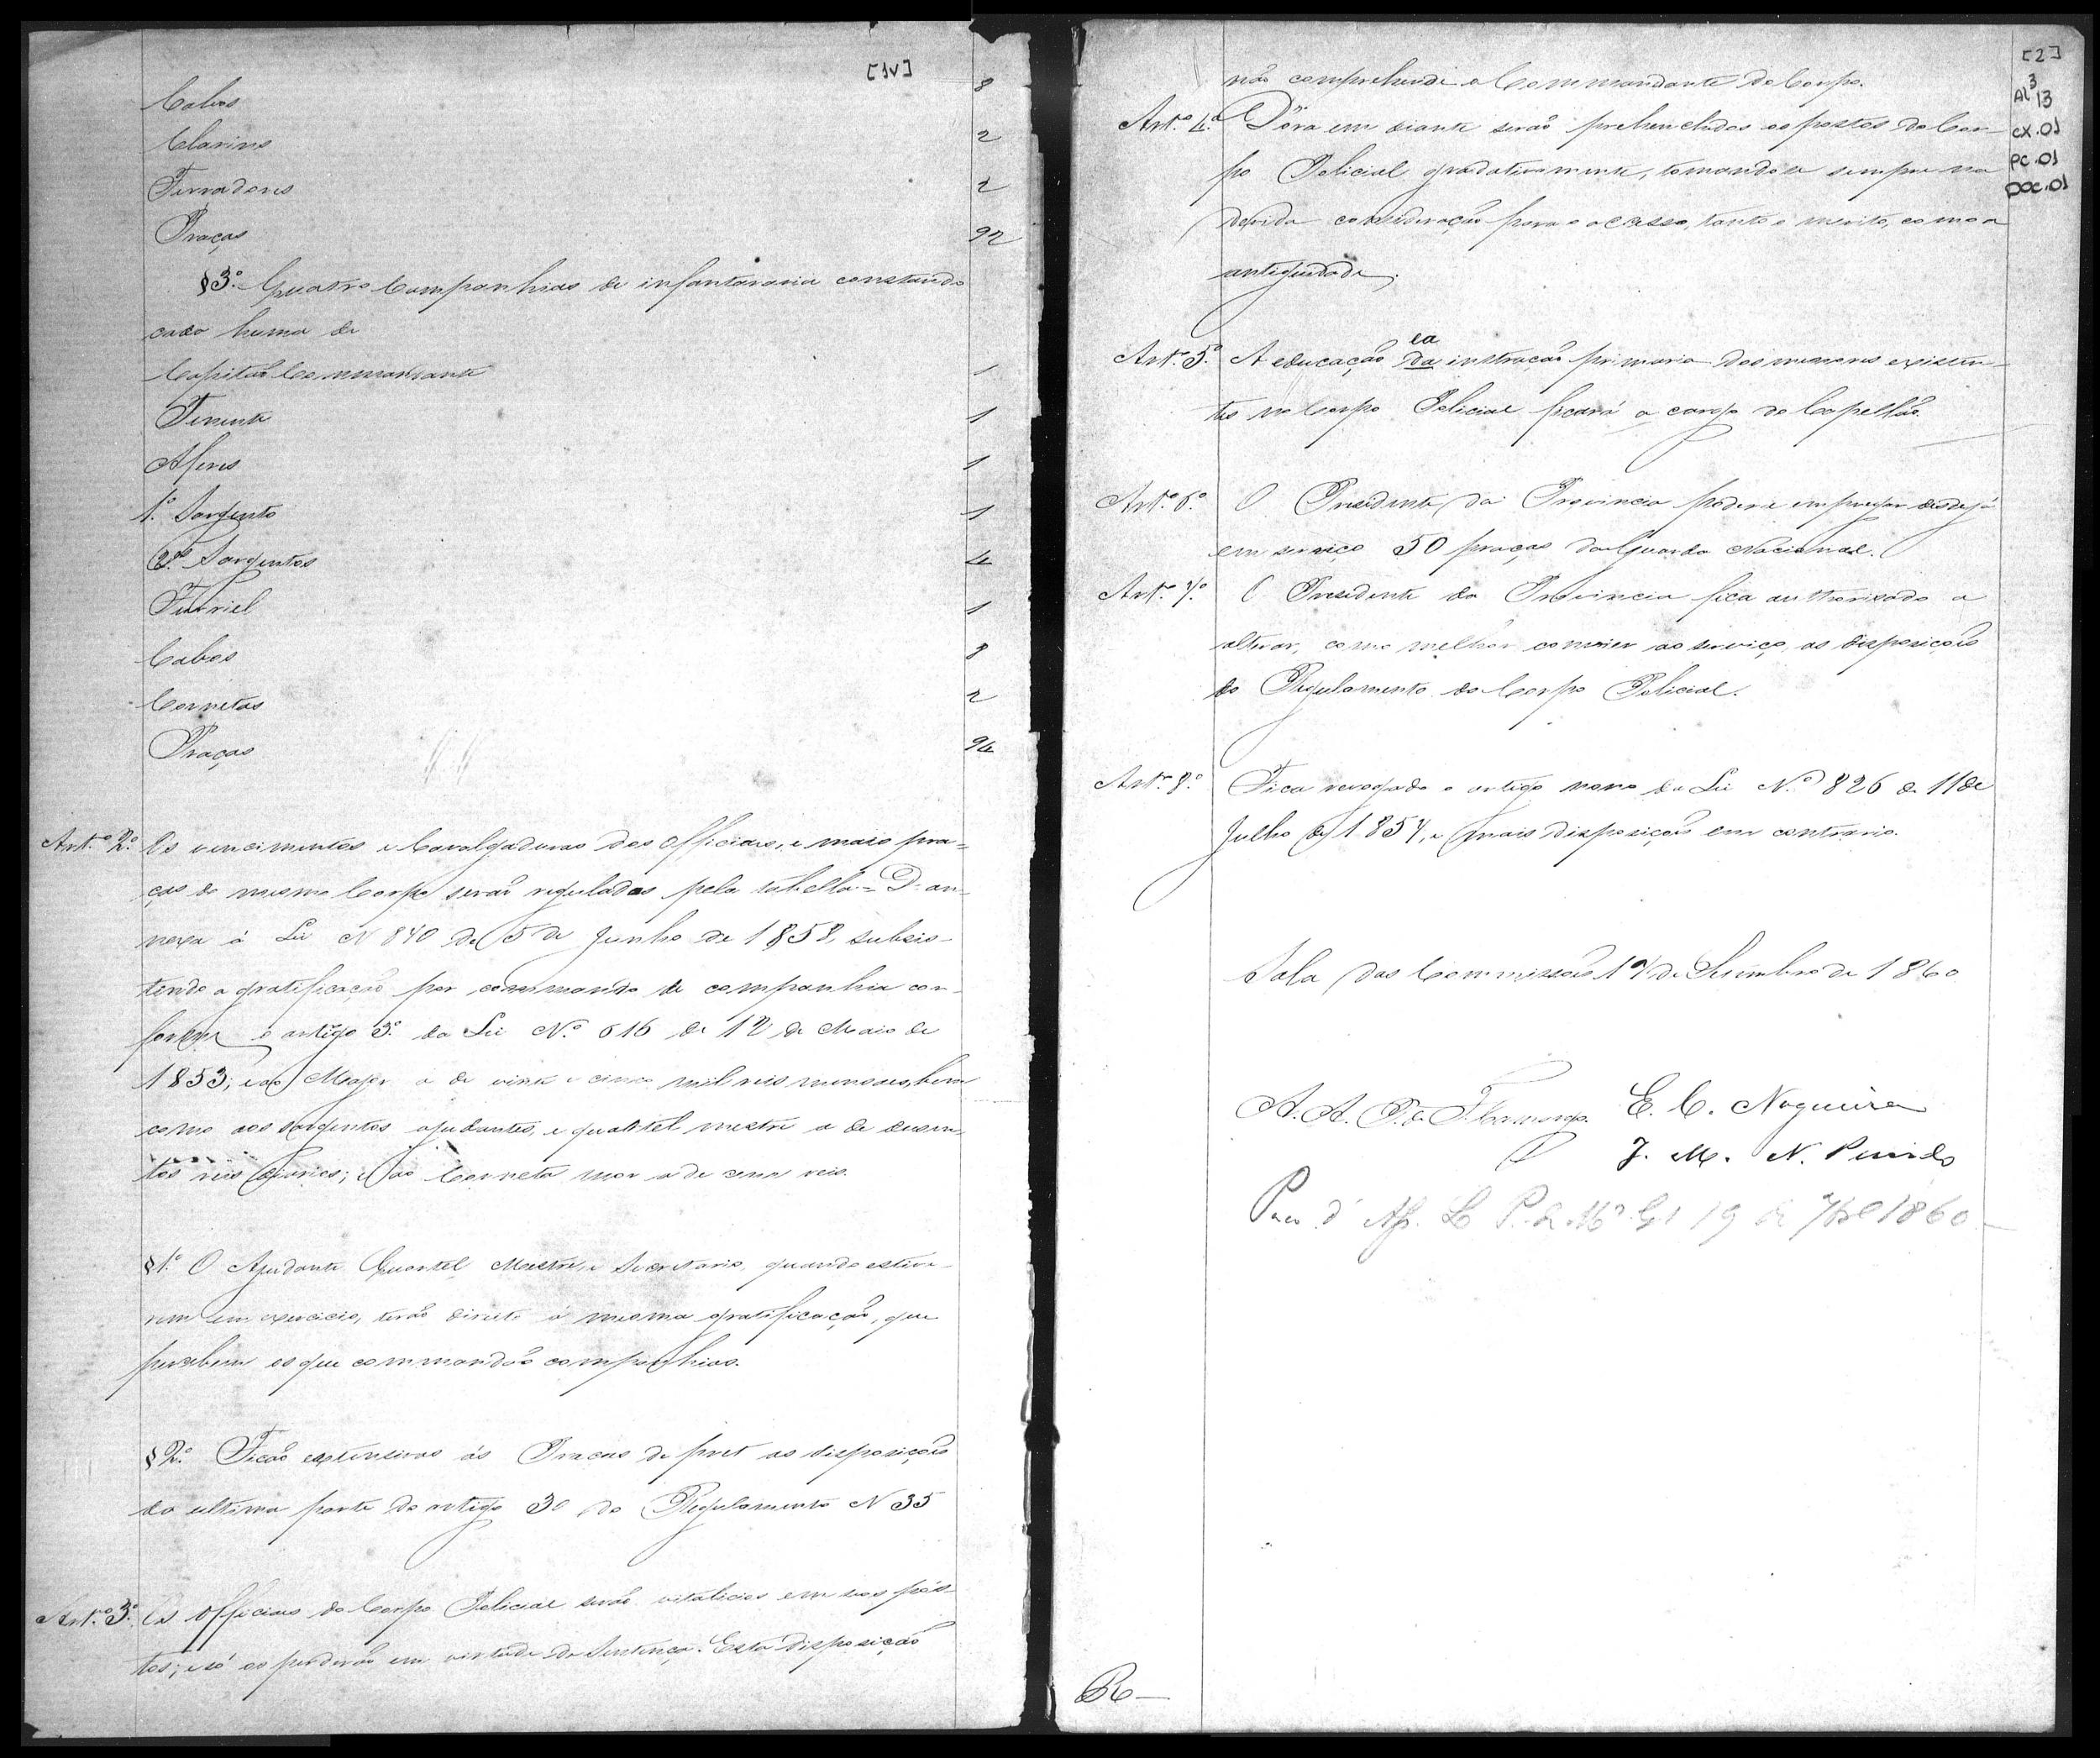 [1v]
Cabos 8
Clarins 2
Ferradores 2
Praças 92
§3.º Quatro Companhias de infantararia constando
cada huma de
Capitão Commandante 1
Tenente 1
Alferes 1
1.º Sargento 1
2.os Sargentos 4
Furriel 1
Cabos 8
Cornetas 2
Praças 94
Art.º 2.º Os vencimentos e Cavalgaduras dos Officiaes, e mais pra=
ças do mesmo Corpo serão regulados pela tabella = D- an-
nexa á Lei N 840 de 5 de Junho de 1858, subsis-
tindo a gratificação por commando de companhia con-
forme o artigo 3.º da Lei N.º 616 de 12 de Maio de
1853; e ao Major a de vinte e cinco mil reis mensaes, bem
como aos sargentos ajudantes, e quartel mestre a de duzen-
tos reis diarios; e ao Corneta mor a de cem reis.
§1.º O Ajudante Quartel Mestre, e Secretario, quando estive-
rem em exercicio, terão direito á mesma gratificação, que
percebem os que commandão companhias.
§2.º Ficão extensivas ás Praças de pret as disposições
da ultima parte do artigo 30 do Regulamento N 35
Art.º 3.º Os Officiaes do Corpo Policial serão vitalicios em seos pós-
tos; e só os perderão em virtude de Sentença. Esta disposição
[2]
não comprehende o Commandante do Corpo.
AL 3 13
CX.01
PC.01
DOC.01
Art.º 4.º D'ora em diante serão prehenchidos os postos do Cor-
po Policial gradativamente, tomando se sempre na
devida consideração para o accesso, tanto o merito, como a
antiguidade.
Art.º 5.º A educação da instrucão primaria dos menores existen-
ea
tes no Corpo Policial ficará a cargo do Capellão.
Art.º 6.º O Presidente da Provincia poderá empregar desde já
em serviço 50 praças da Guarda Nacional.
Art.º 7.º O Presidente da Provincia fica authorisado a
alterar, como melhor convier ao serviço, as disposições
do Regulamento do Corpo Policial.
Art.º 8.º Fica revogado o artigo nono da Lei N.º 826 de 11 de
Julho de 1857, e mais disposições em contrario.
Sala das Commissões 17 de Setembro de 1860
A. A. E. C. Nogueira
J. M. N. Penido
19 de 7bro 1860